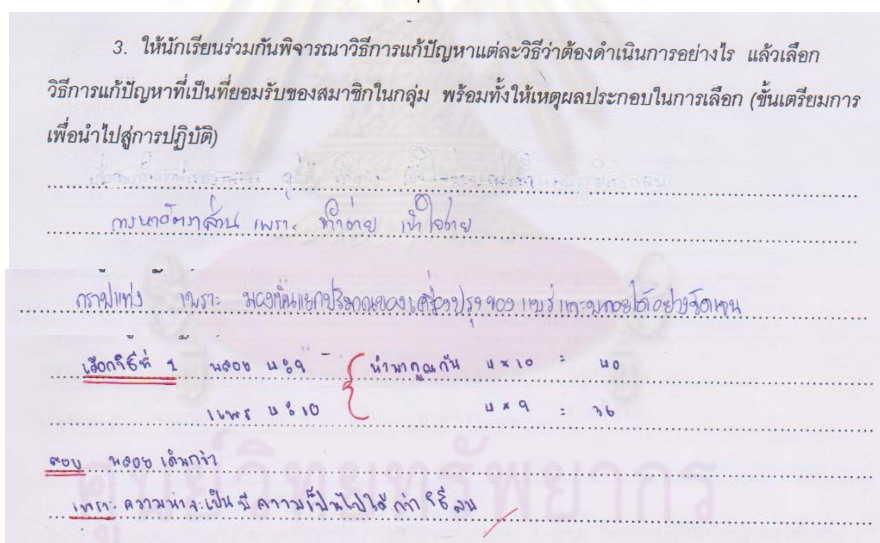 3. ให้นักเรียนร่วมกันพิจารณาวิธีการแก้ปัญหาแต่ละวิธีว่าต้องดำเนินการอย่างไร แล้วเลือก
วิธีการแก้ปัญหาที่เป็นที่ยอมรับของสมาชิกในกลุ่ม พร้อมทั้งให้เหตุผลประกอบในการเลือก (ขั้นเตรียมการ
เพื่อนำไปสู่การปฏิบัติ)
การหาอัตราส่วน เพราะ ทำง่าย เข้าใจง่าย
กราฟแท่ง เพราะ มองเห็นแยกปริมาณของเครื่องปรุงของ แพร และพลอยได้อย่างชัดเจน
เลือกวิธีที่ 1 พลอย 4:9 { นำมาคูณกัน 4 × 10 = 40
แพร 4:10 4 × 9 = 36
ตอบ พลอย เค็มกว่า
เพราะ ความน่าจะเป็น มี ความเป็นไปได้ กว่า วิธี ลบ
ศูนย์วิทยทรัพยากร